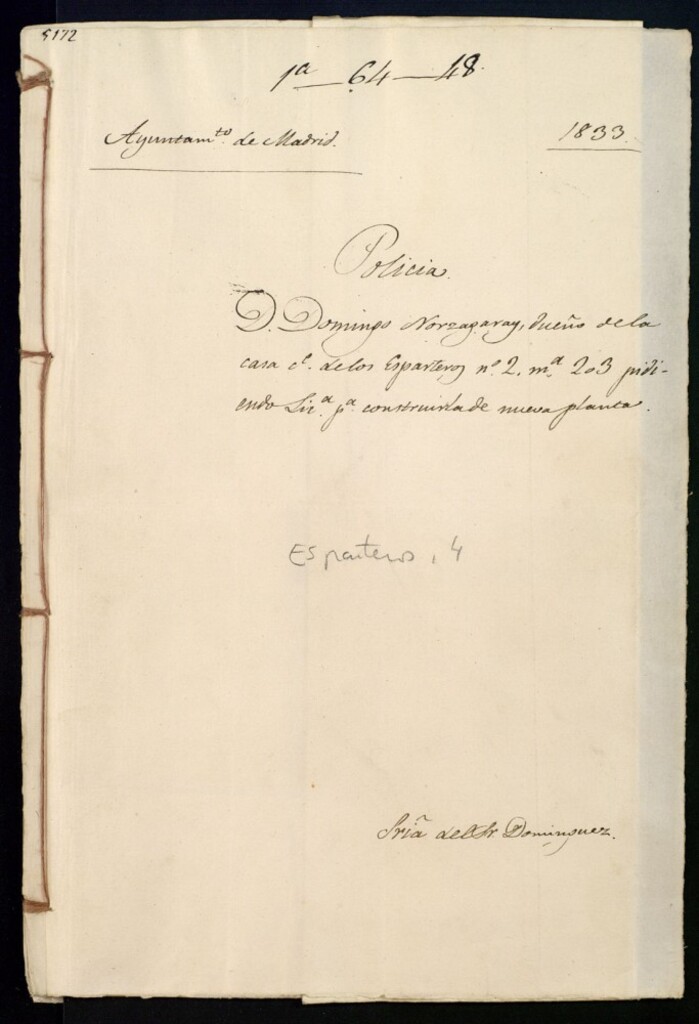 5172
1ª — 64 — 48
Ayuntam.to de Madrid.
1833.
Policia.
D. Domingo Norzagaray, dueño de la
casa c.e de los Esparteros nº. 2. m.ª 203 pidi-
endo Lic.ª p.ª construirla de nueva planta.
Esparteros, 4
Sriã del Sr Dominguez.